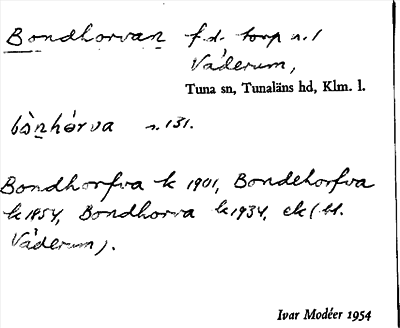 Bondhorvan f.d. torp n.1
Väderum,
Tuna sn, Tunaläns hd, Klm. l.
bònhórva s. 131.
Bondhorfva k 1901, Bondehorfva
k 1854, Bondhorva k 1934, ek (bl.
Väderum).
Ivar Modéer 1954